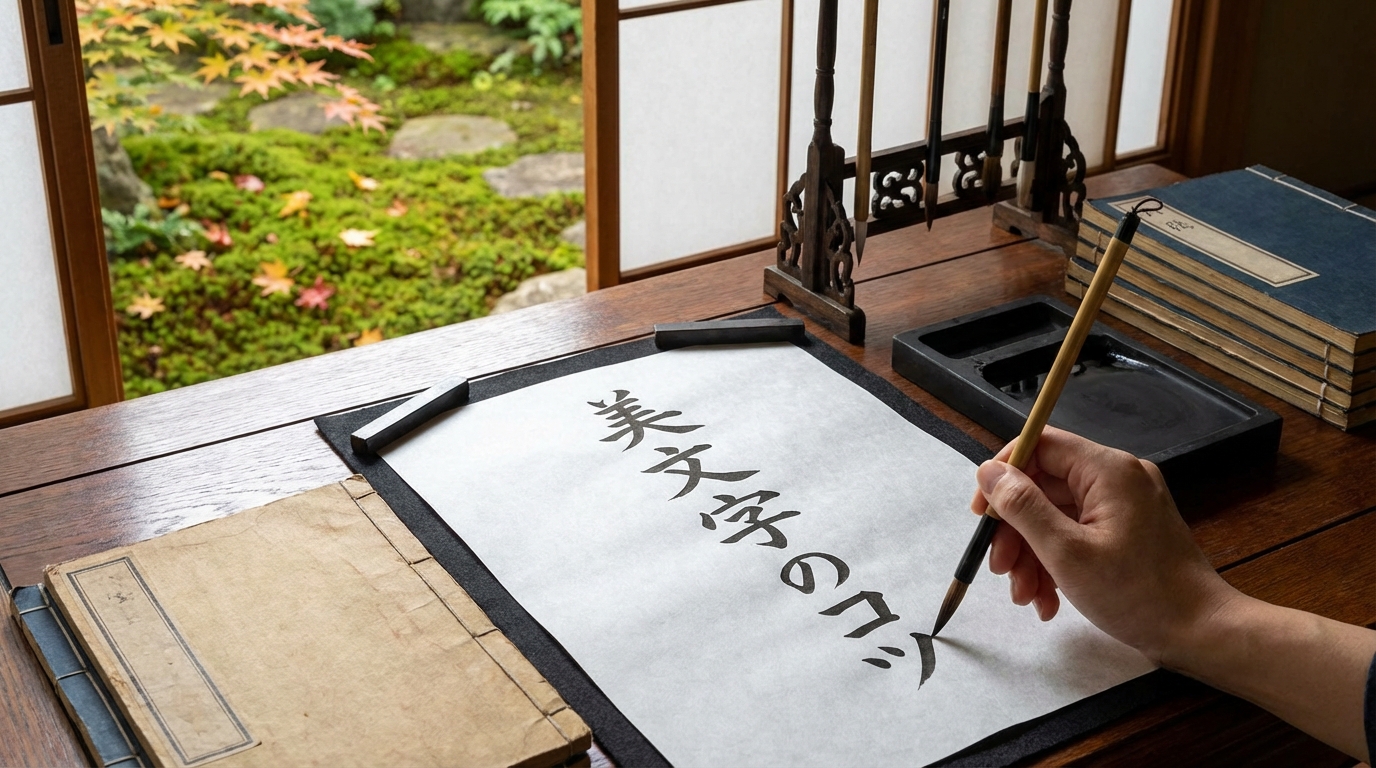 美文字のコツ